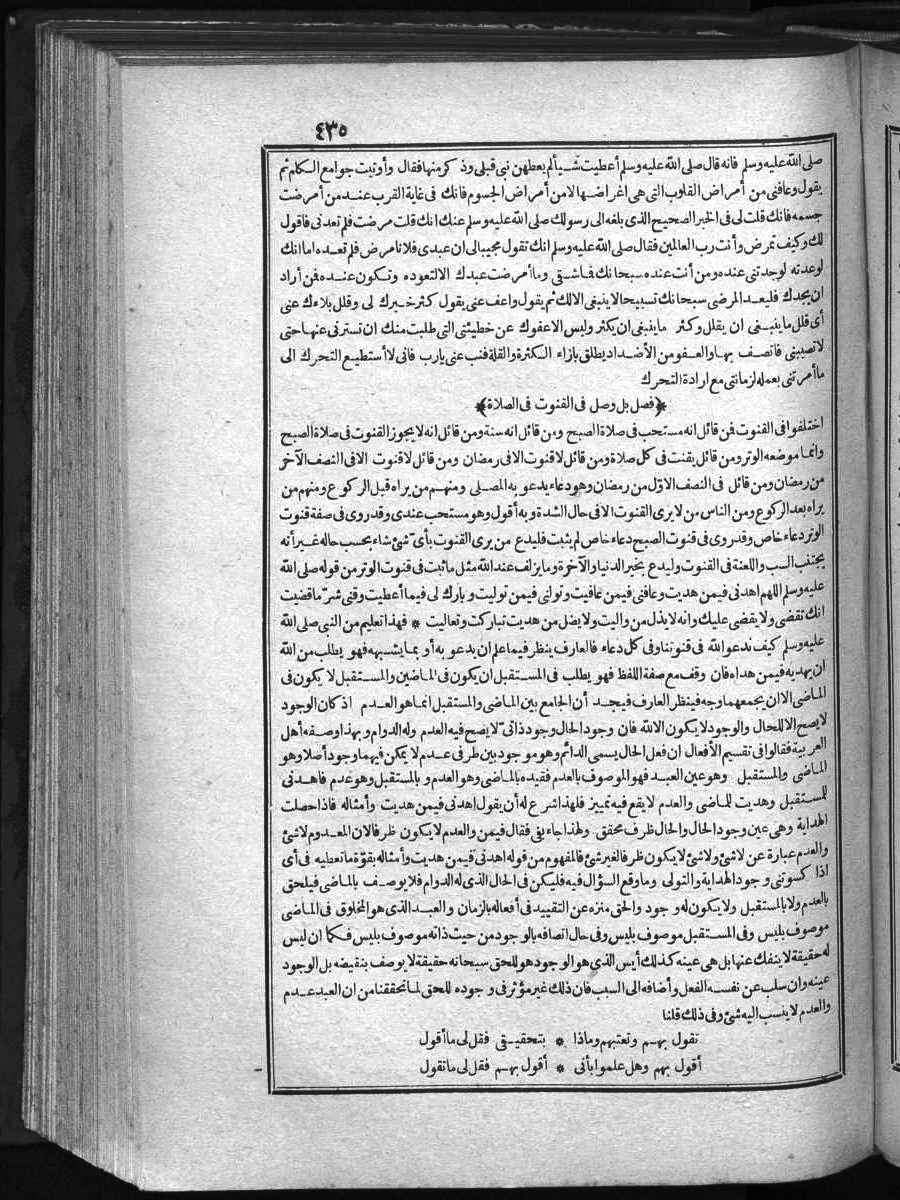 ٤٣٥
صلى الله عليه وسلم فانه قال صلى الله عليه وسلم أعطيت شيأ لم يعطهن نبى قبلى وذكر منها فقال وأوتيت جوامع الكلم ثم
يقول وعافنى من أمراض القلوب التى هى اغراضها لا من أمراض الجسوم فانك فى غاية القرب عند من أمرضت
جسمه فانك قلت لى فى الخبر الصحيح الذى بلغه الى رسولك صلى الله عليه وسلم عنك انك قلت مرضت فلم تعدنى فاقول
لك وكيف تمرض وأنت رب العالمين فقال صلى الله عليه وسلم انك تقول مجيبا لى ان عبدى فلانا مرض فلم تعده اما انك
لو عدته لوجدتنى عنده ومن أنت عنده سبحانك فاشقى وما أمرضت عبدك الا لتعوده وتكون عنده فمن أراد
ان يجدك فليعد المرضى سبحانك تسبيحا لا ينبغى الا لك ثم يقول واعف عنى يقول كثر خيرك لى وقلل بلاءك عنى
أى قلل ما ينبغى ان يقلل وكثر ما ينبغى ان يكثر وليس الا عفوك عن خطيئتى التى طلبت منك ان تسترنى عنها حتى
لا تصيبنى فاتصف بها والعفو من الأضداد يطلق بازاء الكثرة والقلة فنب عنى يارب فانى لا أستطيع التحرك الى
ما أمرتنى بعمله لزمانتى مع ارادة التحرك
﴿فصل بل وصل فى القنوت فى الصلاة﴾
اختلفوا فى القنوت فمن قائل انه مستحب فى صلاة الصبح ومن قائل انه سنة ومن قائل انه لا يجوز القنوت فى صلاة الصبح
وانما موضعه الوتر ومن قائل يقنت فى كل صلاة ومن قائل لا قنوت الا فى رمضان ومن قائل لا قنوت الا فى النصف الآخر
من رمضان ومن قائل فى النصف الاوّل من رمضان وهو دعاء يدعو به المصلى ومنهم من يراه قبل الركوع ومنهم من
يراه بعد الركوع ومن الناس من لا يرى القنوت الا فى حال الشدة وبه أقول وهو مستحب عندى وقد روى فى صفة قنوت
الوتر دعاء خاص وقد روى فى قنوت الصبح دعاء خاص لم يثبت فليدع من يرى القنوت بأى شئ شاء بحسب حاله غير أنه
يجتنب السب واللعنة فى القنوت وليدع بخير الدنيا والآخرة وما يزلف عند الله مثل ما ثبت فى قنوت الوتر من قوله صلى الله
عليه وسلم اللهم اهدنى فيمن هديت وعافنى فيمن عافيت وتولنى فيمن توليت وبارك لى فيما أعطيت وقنى شرّ ما قضيت
انك تقضى ولا يقضى عليك وانه لا يذل من واليت ولا يضل من هديت تباركت وتعاليت * فهذا تعليم من النبى صلى الله
عليه وسلم كيف ندعو الله فى قنوتنا وفى كل دعاء فالعارف ينظر فيما علم ان يدعو به أو بما يشبهه فهو يطلب من الله
ان يهديه فيمن هداه فان وقف مع صفة اللفظ فهو يطلب فى المستقبل ان يكون فى الماضين والمستقبل لا يكون فى
الماضى الا ان يجمعهما وجه فينظر العارف فيجد أن الجامع بين الماضى والمستقبل انما هو العدم اذ كان الوجود
لا يصح الا للحال والوجود لا يكون الا لله فان وجود الحال وجود ذاتىّ لا يصح فيه العدم وله الدوام وبهذا وصفه أهل
العربية فقالوا فى تقسيم الأفعال ان فعل الحال يسمى الدائم وهو موجود بين طرفى عدم لا يمكن فيهما وجود أصلا وهو
الماضى والمستقبل وهو عين العبد فهو الموصوف بالعدم فقيده بالماضى وهو العدم وبالمستقبل وهو عدم فاهدنى
للمستقبل وهديت للماضى والعدم لا يقع فيه تمييز فلهذا شرع له أن يقول اهدنى فيمن هديت وأمثاله فاذا حصلت
الهداية وهى عين وجود الحال والحال ظرف محقق ولهذا جاء بفى فقال فيمن والعدم لا يكون ظرفا لان المعدوم لا شئ
والعدم عبارة عن لا شئ ولا شئ لا يكون ظرفا لغير شئ فالمفهوم من قوله اهدنى فيمن هديت وأمثاله بقوّة ما تعطيه فى أى
اذا كسوتنى وجود الهداية والتولى وما وقع السؤال فيه فليكن فى الحال الذى له الدوام فلا يوصف بالماضى فيلحق
بالعدم ولا بالمستقبل ولا يكون له وجود والحق منزه عن التقييد فى أفعاله بالزمان والعبد الذى هو المخلوق فى الماضى
موصوف بليس وفى المستقبل موصوف بليس وفى حال اتصافه بالوجود من حيث ذاته موصوف بليس فكما ان ليس
له حقيقة لا ينفك عنها بل هى عينه كذلك أيس الذى هو الوجود هو للحق سبحانه حقيقة لا يوصف بنقيضه بل الوجود
عينه وان سلب عن نفسه الفعل وأضافه الى السبب فان ذلك غير مؤثر فى وجوده للحق لما تحققنا من ان العبد عدم
والعدم لا ينسب اليه شئ وفى ذلك قلنا
تقول بهم وتعتبهم وماذا * بتحقيقى فقل لى ما أقول
أقول بهم وهل علموا بأنى * أقول بهم فقل لى ما تقول